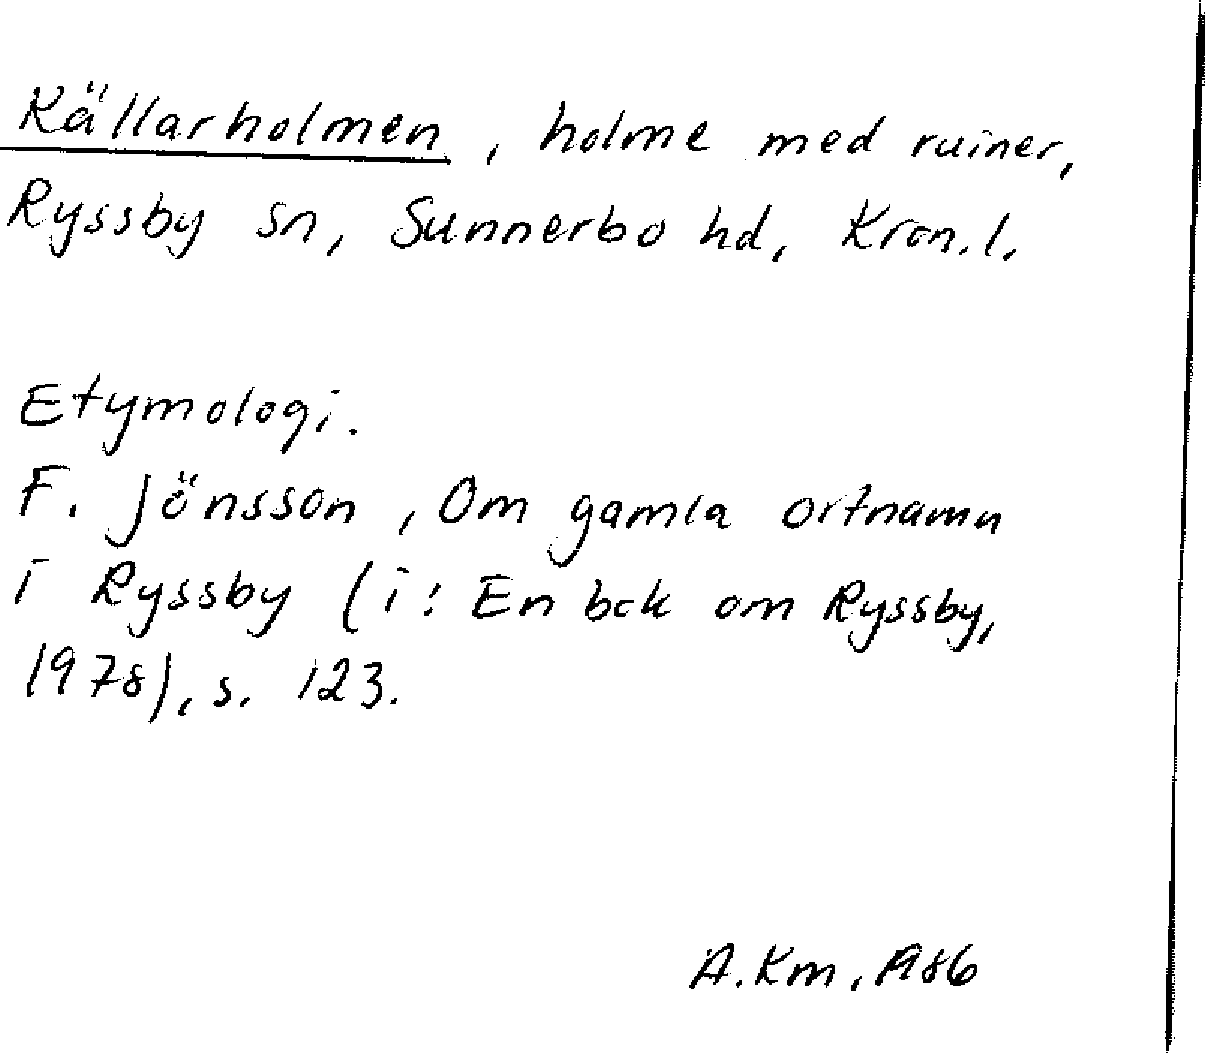 Källarholmen, holme med ruiner,
Ryssby sn, Sunnerbo hd, Kron. l.
Etymologi.
F. Jönsson, Om gamla ortnamn
i Ryssby (i: En bok om Ryssby,
1978), s. 123.
A. Km, 1986